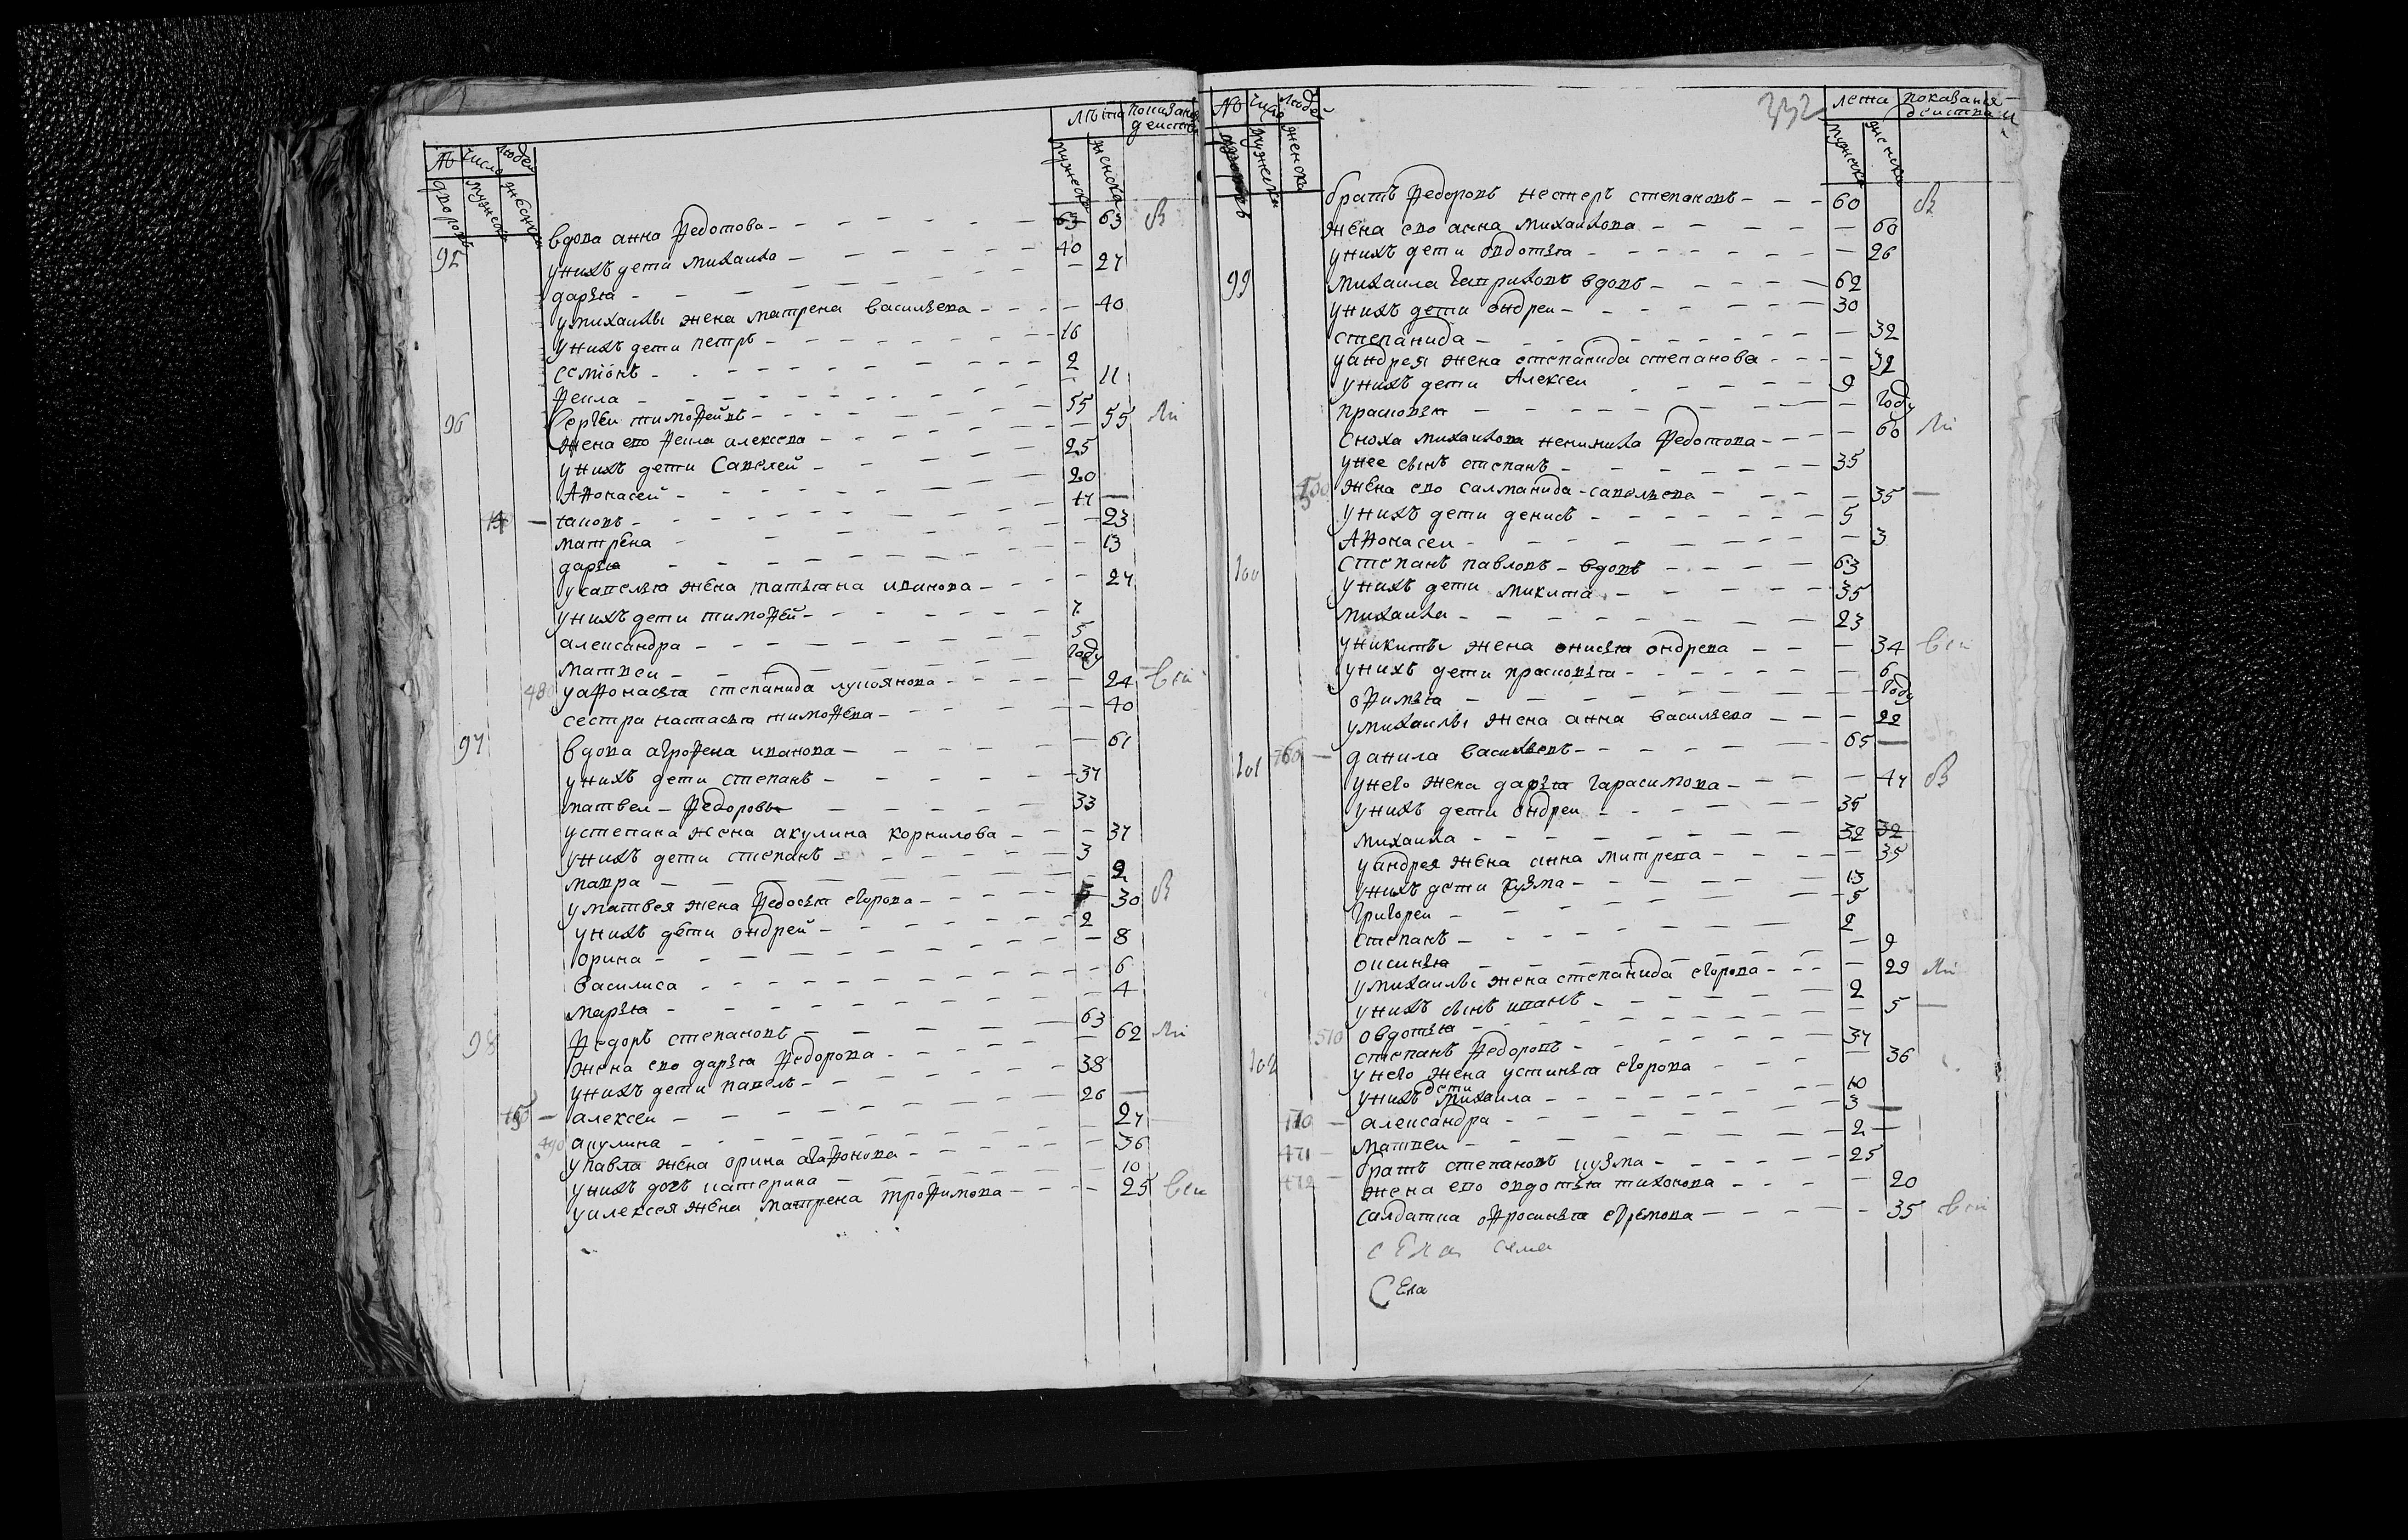 № число людей лѣта показание деиства
дворовъ мужеска женска мужеска женска
95 вдова анна Федотова 63 63 В
унихъ дети михаила 40
дарья 27
умихаилы жена матрена васильева 40
унихъ дети петръ 16
семионъ 2
Фекла 11
96 сергеи тимофеивъ 55
жена ево Фекла алексева 55
унихъ дети Савелей 25
Афонасей 20
яковъ 17
матрена 23
дарья 13
усавелья жена татьяна иванова 27
унихъ дети тимофей 7
александра 5
матвеи году
480 уафонасья степанида лукоянова 24
сестра настасья тимофева 40
97 вдова аграфена иванова 61
унихъ дети степанъ 37
матвеи Федоровы 33
устепана жена акулина корнилова 37
унихъ дети степанъ 3
мавра 2
уматвея жена Федосья егорова 30 В
унихъ дети ондрей 2
орина 8
василиса 6
марья 4
98 Федоръ степановъ 63
жена ево дарья Федорова 62
унихъ дети павелъ 38
алексеи 26
490 акулина 27
упавла жена орина агафонова 36
унихъ дочь катерина 10
уалексея жена матрена трофимова 25
332
№ число людей лета показание деиства
дворовъ мужеска женска мужеска женска
братъ Федоровъ нестеръ степановъ 60 В
жена ево анна михаилова 60
унихъ дети овдотья 26
99 михаила гавриловъ вдовъ 62
унихъ дети ондреи 30
степанида 32
уандрея жена степанида степанова 32
унихъ дети Алексеи 9
прасковья году
сноха михаилова ненила Федотова 60
унее сынъ степанъ 35
500 жена ево салманида савельева 35
унихъ дети денисъ 5
Афонасеи 3
100 степанъ павловъ вдовъ 63
унихъ дети микита 35
михаила 23
уникиты жена онисья ондрева 34
унихъ дети прасковья 6
офимья году
умихаилы жена анна васильева 22
101 данила васильевъ 65
унего жена дарья гарасимова 47 В
унихъ дети ондреи 35
михаила 32 32
уандрея жена анна митрева 35
унихъ дети кузма 13
григореи 5
степанъ 2
оксинья 9
умихаилы жена степанида егорова 29
унихъ сынъ иванъ 2
510 овдотья 5
102 степанъ Федоровъ 37
унего жена устинья егорова 36
унихъ дети михаила 10
170 александра 3
171 матвеи 2
172 братъ степановъ кузма 25
жена ево овдотья тихонова 20
салдатка офросинья ефремова 35
Села